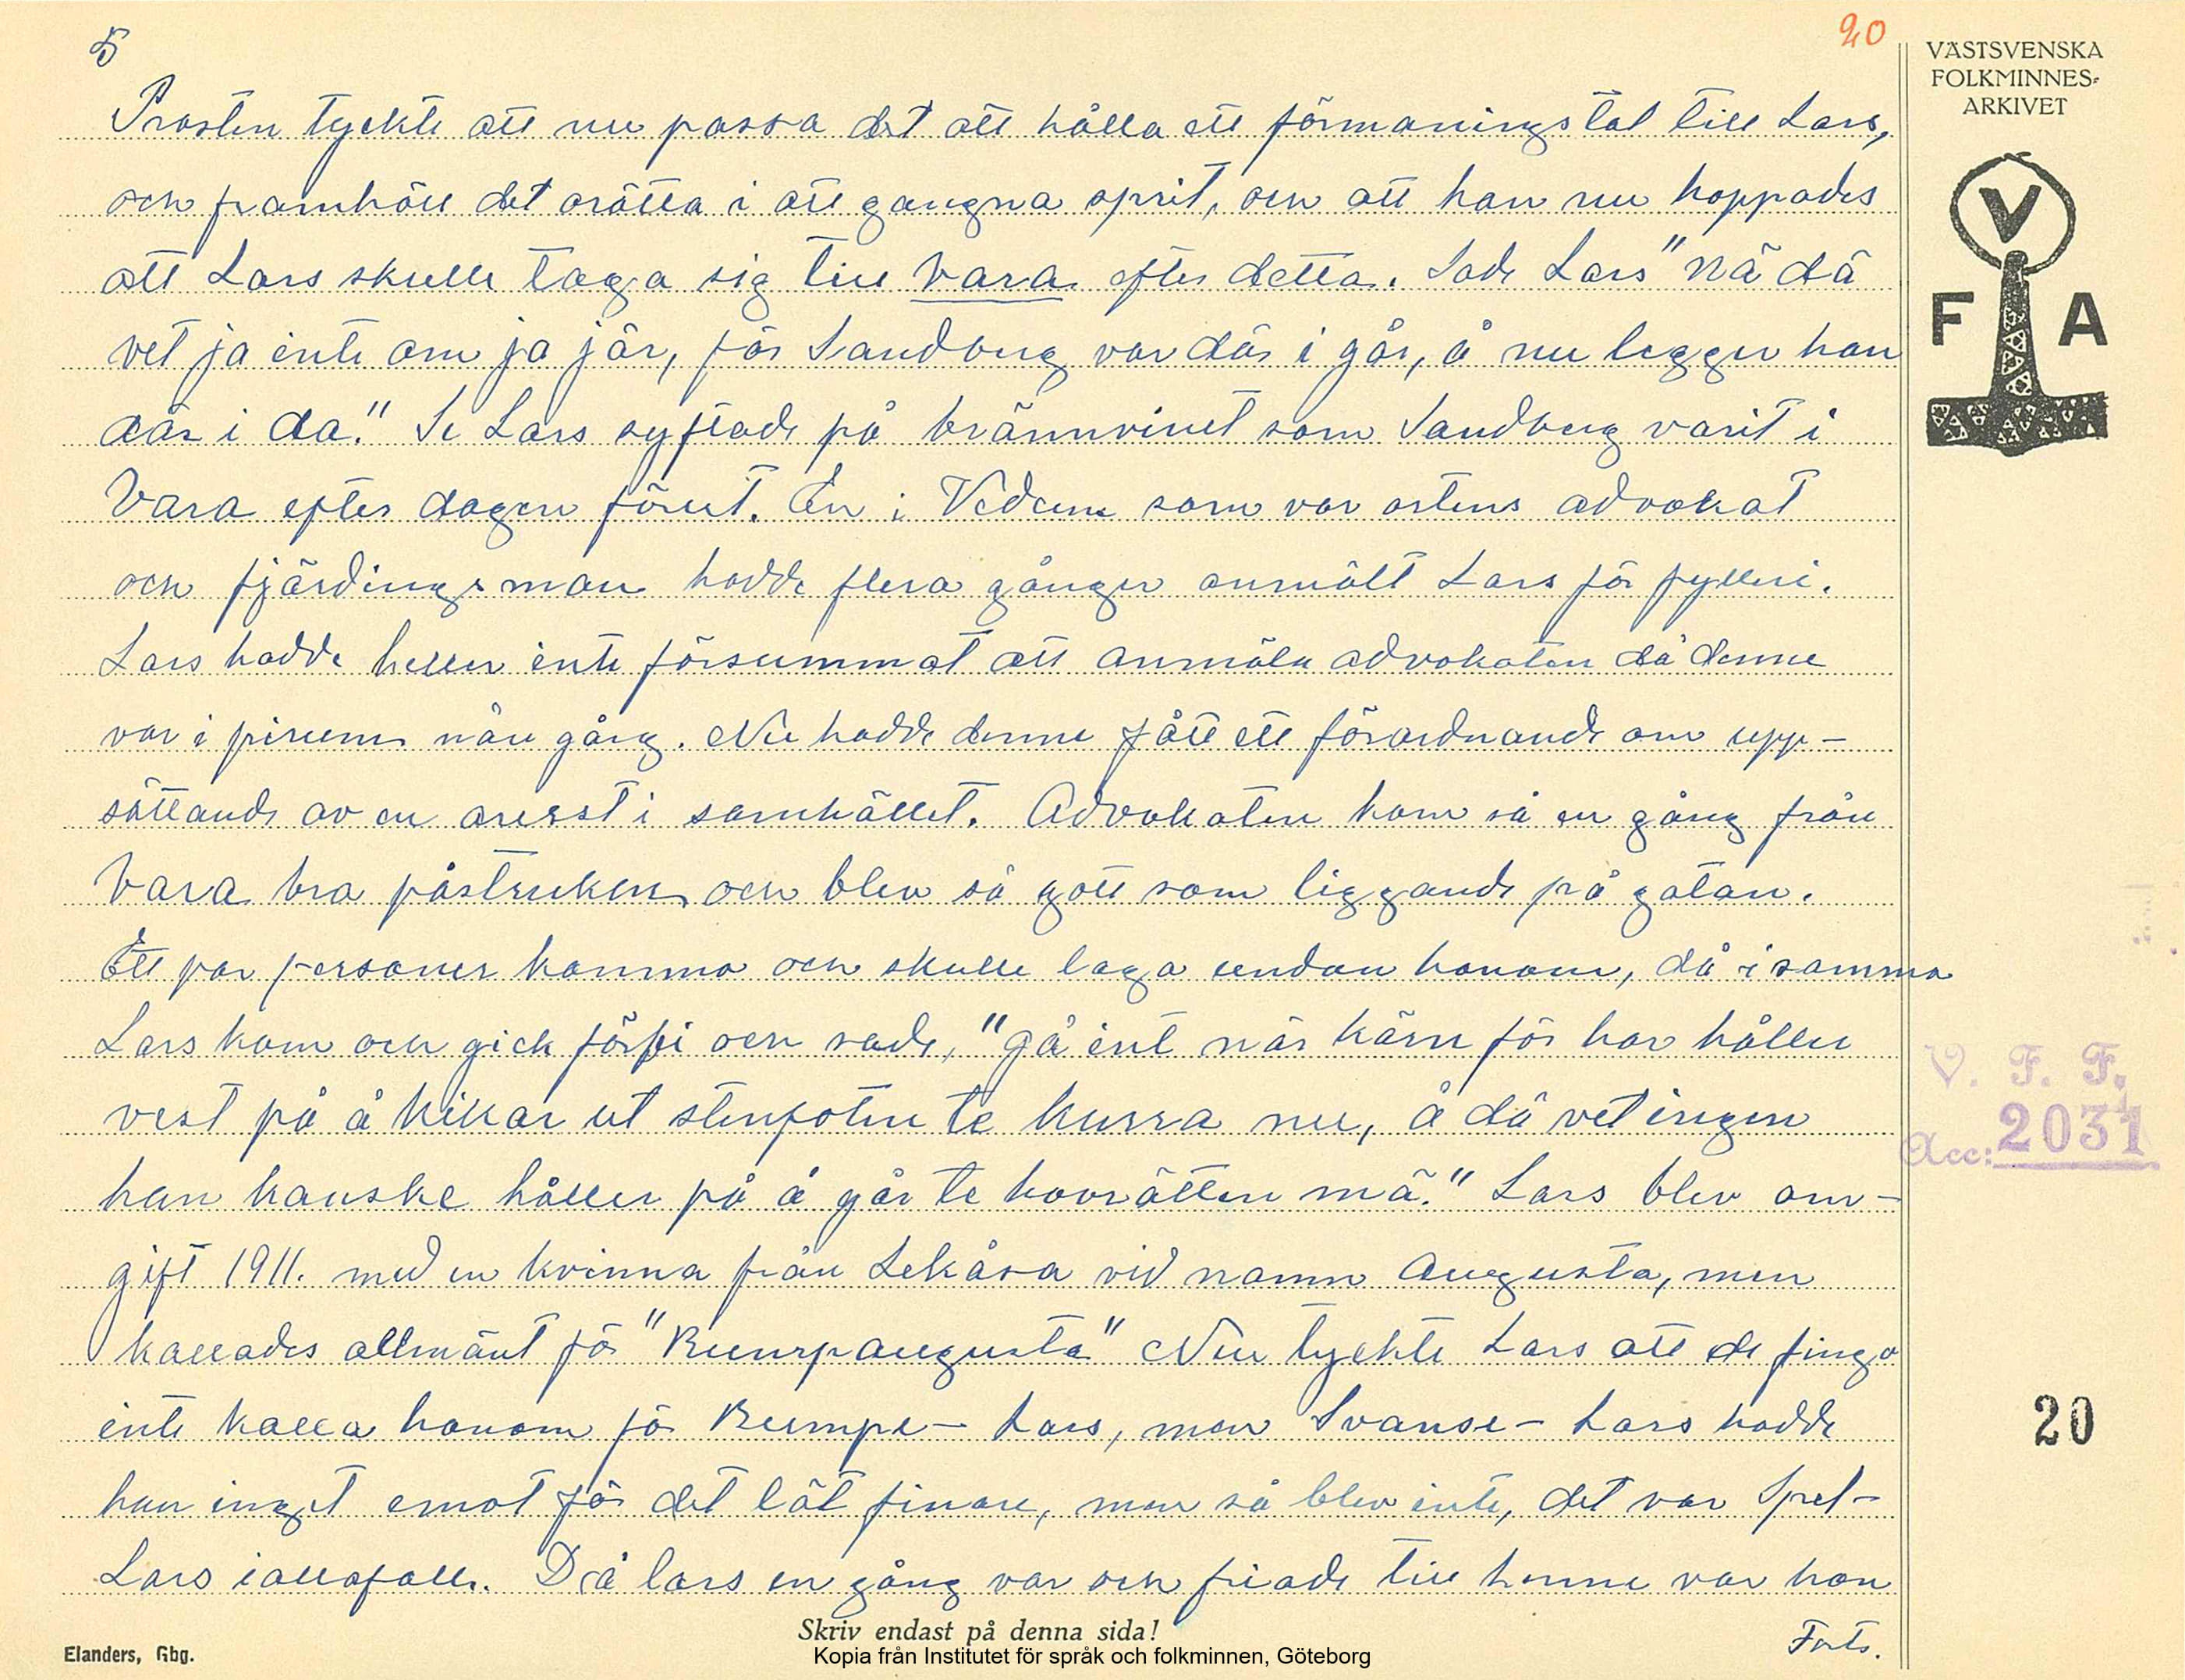 5
20
VÄSTSVENSKA
FOLKMINNES-
ARKIVET
V
F A
Prosten tyckte att nu passa det att hålla ett förmaningstal till Lars,
och framhöll det orätta i att gaugna sprit, och att han nu hoppades
att Lars skulle taga sig till Vara efter detta. Sade Lars "Nä dä
vet ja inte om ja jör, för Sandberg var där i går, å nu legger han
där i da." Se Lars syftade på brännvinet som Sandberg varit i
Vara efter dagen förut. En i Vedum som var ortens advokat
och fjärdingsman hadde flera gånger anmält Lars för fylleri.
Lars hadde heller inte försummat att anmäla advokaten då denne
var i pirum nån gång. Nu hadde denne fått ett förordnande om upp-
sättande av en arresst i samhället. Advokaten kom så en gång från
Vara bra påstruken och blev så gott som liggande på gatan.
Ett par personer kommo och skulle laga undan honom, då i samma
Lars kom och gick förbi och sade, "gå int när kärn för han håller
vest på å kikar ut stenfoten te kurra nu, å dä vet ingen
han kanske håller på å går te hovrätten mä." Lars blev om-
gift 1911. med en kvinna från Lekåsa vid namn Augusta, men
kallades allmänt för "Rumpaugusta" Nu tyckte Lars att de fingo
inte kalla honom för Rumpe- Lars, men Svanse- Lars hadde
han inget emot för det lät finare, men så blev inte, det var Spel-
Lars iallafall. Då lars en gång var och friade till henne var hon
Forts.
V. F. F.
Acc: 2031
20
Skriv endast på denna sida!
Elanders, Gbg.
Kopia från Institutet för språk och folkminnen, Göteborg